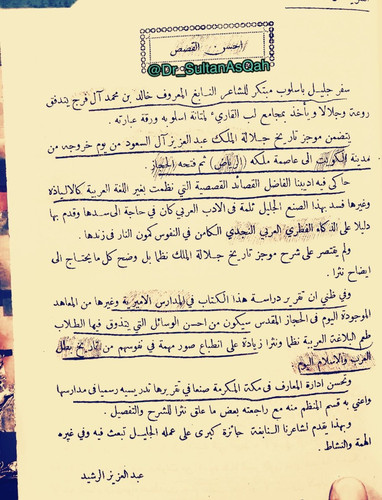 احسن القصص
@Dr_SultanAsQah
سفر جليل باسلوب مبتكر للشاعر النابغ المعروف خالد بن محمد آل فرج يتدفق
روعة وجلالا ويأخذ بمجامع لب القاريء لمتانة اسلوبه ورقة عبارته .
يتضمن موجز تاريخ جلالة الملك عبد العزيز آل السعود من يوم خروجه من
مدينة الكويت الى عاصمة ملكه (الرياض) ثم فتحه الحجاز
حاكى فيه اديبنا الفاضل القصائد القصصية التي نظمت بغير اللغة العربية كالالياذة
وغيرها فسد بهذا الصنع الجليل ثلمة في الادب العربي كان في حاجة الى سدها وقدم بها
دليلا على الذكاء الفطري العربي النجدي الكامن في النفوس كمون النار في زندها .
ولم يقتصر على شرح موجز تاريخ جلالة الملك نظما بل وضح كل ما يحتاج الى
ايضاح نثرا .
وفي ظني ان تقرير دراسة هذا الكتاب في المدارس الاميرية وغيرها من المعاهد
الموجودة اليوم في الحجاز المقدس سيكون من احسن الوسائل التي يتذوق فيها الطلاب
طعم البلاغة العربية نظما ونثرا زيادة على انطباع صور مهمة في نفوسهم من تاريخ بطل
العرب والاسلام اليوم
وتحسن ادارة المعارف في مكة المكرمة صنعا في تقريرها تدريسه رسميا في مدارسها
واعني به قسم المنظم منه مع راجعته بعض ما علق نثرا للشرح والتفصيل .
وبهذا يقدم لشاعرنا النابغة جائزة كبرى على عمله الجليل تبعث فيه وفي غيره
الهمة والنشاط .
عبد العزيز الرشيد